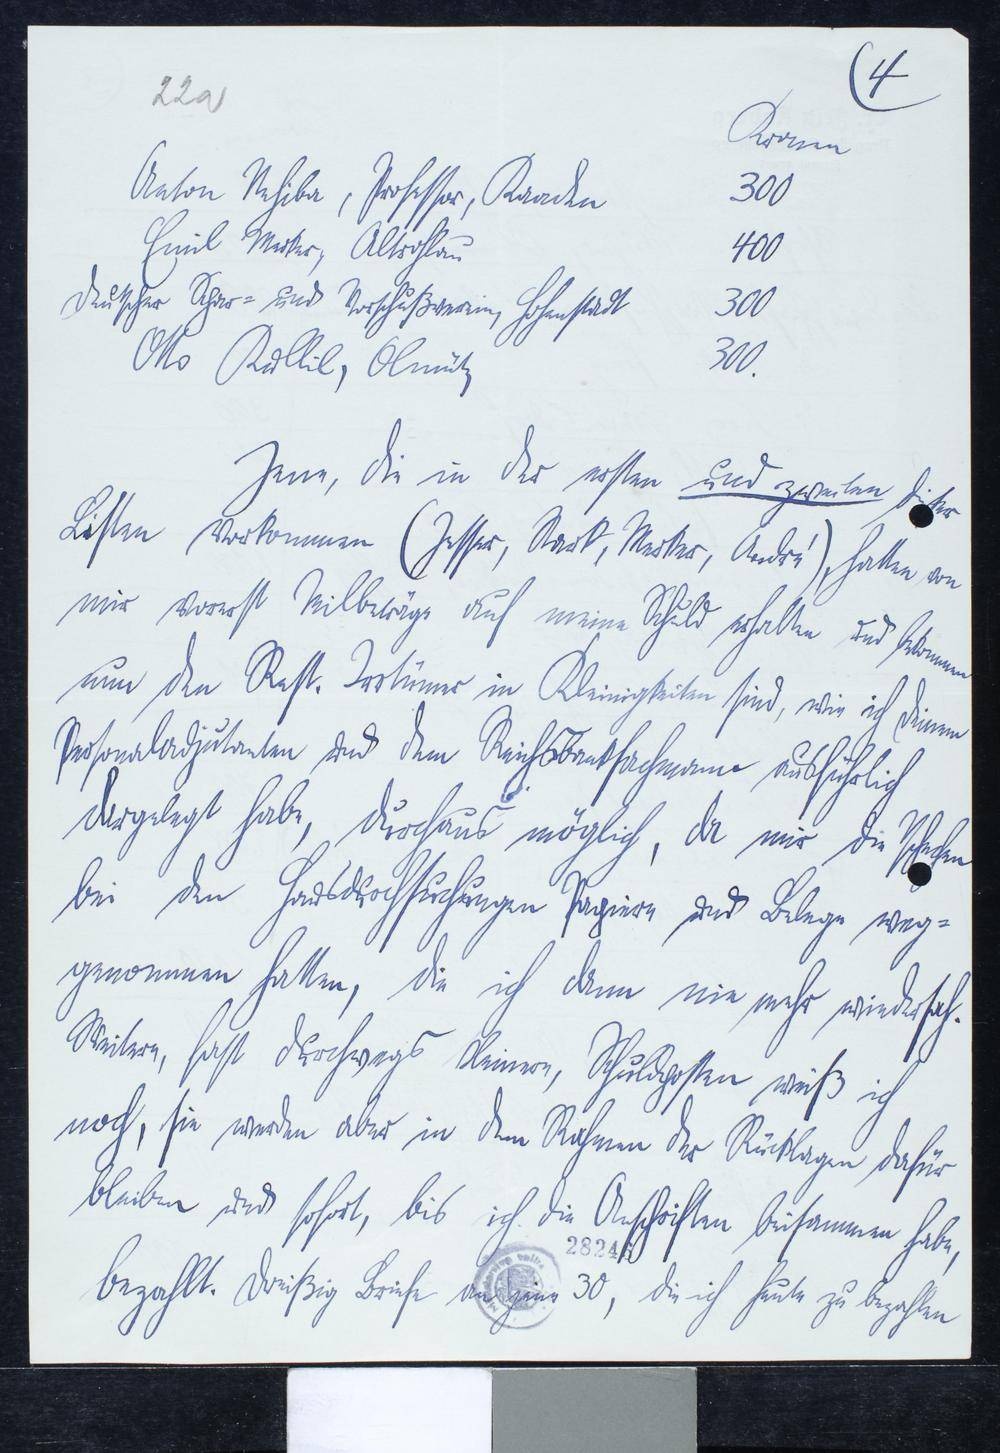 22a
(4
Kronen
Anton Nehiba, Professor, Kaaden 300
Emil Merker, Altrohlau 400
Deutscher Spar= und Vorschußverein, Hohenstadt 300
Otto Kullil, Olmütz 300.
Jene, die in der ersten und zweiten dieser
Listen vorkommen (Jesser, Stark, Merker, André), hatten von
mir vorerst Teilbeträge auf meine Schuld erhalten und bekommen
nun den Rest. Irrtümer in Kleinigkeiten sind, wie ich Deinem
Personaladjutanten und dem Reichsbankfachmanne ausführlich
dargelegt habe, durchaus möglich, da mir die Tschechen
bei den Hausdurchsuchungen Papiere und Belege weg=
genommen hatten, die ich dann nie mehr wiedersah.
Weitere, fast durchwegs kleinere, Schuldposten weiß ich
noch, sie werden aber in dem Rahmen der Rücklagen dafür
bleiben und sofort, bis ich die Anschriften beisammen habe,
bezahlt. Dreißig Briefe an jene 30, die ich heute zu bezahlen
28246